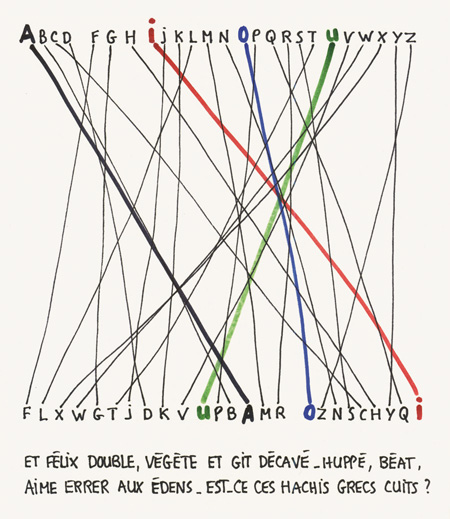 ABCD FGH ijKLMN OPQRST uVWXYZ
FLXWGTjDKVuPBAMROZNSCHYQi
ET FÉLIX DOUBLE, VÉGÈTE ET GIT DÉCAVÉ_HUPPÉ, BÉAT,
AIME ERRER AUX ÉDENS_ EST_CE CES HACHIS GRECS CUITS ?